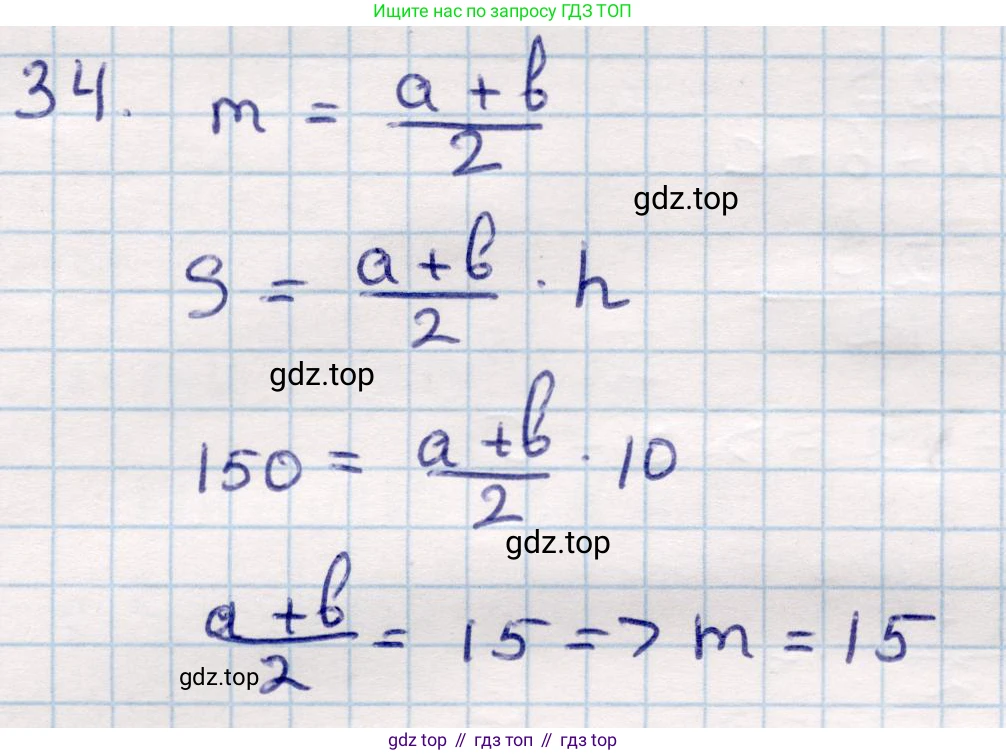 Ищите нас по запросу ГДЗ ТОП
34. m = (a + b)/2
gdz.top
S = (a + b)/2 · h
gdz.top
150 = (a + b)/2 · 10
gdz.top
(a + b)/2 = 15 => m = 15
gdz.top
gdz top // гдз топ // гдз top